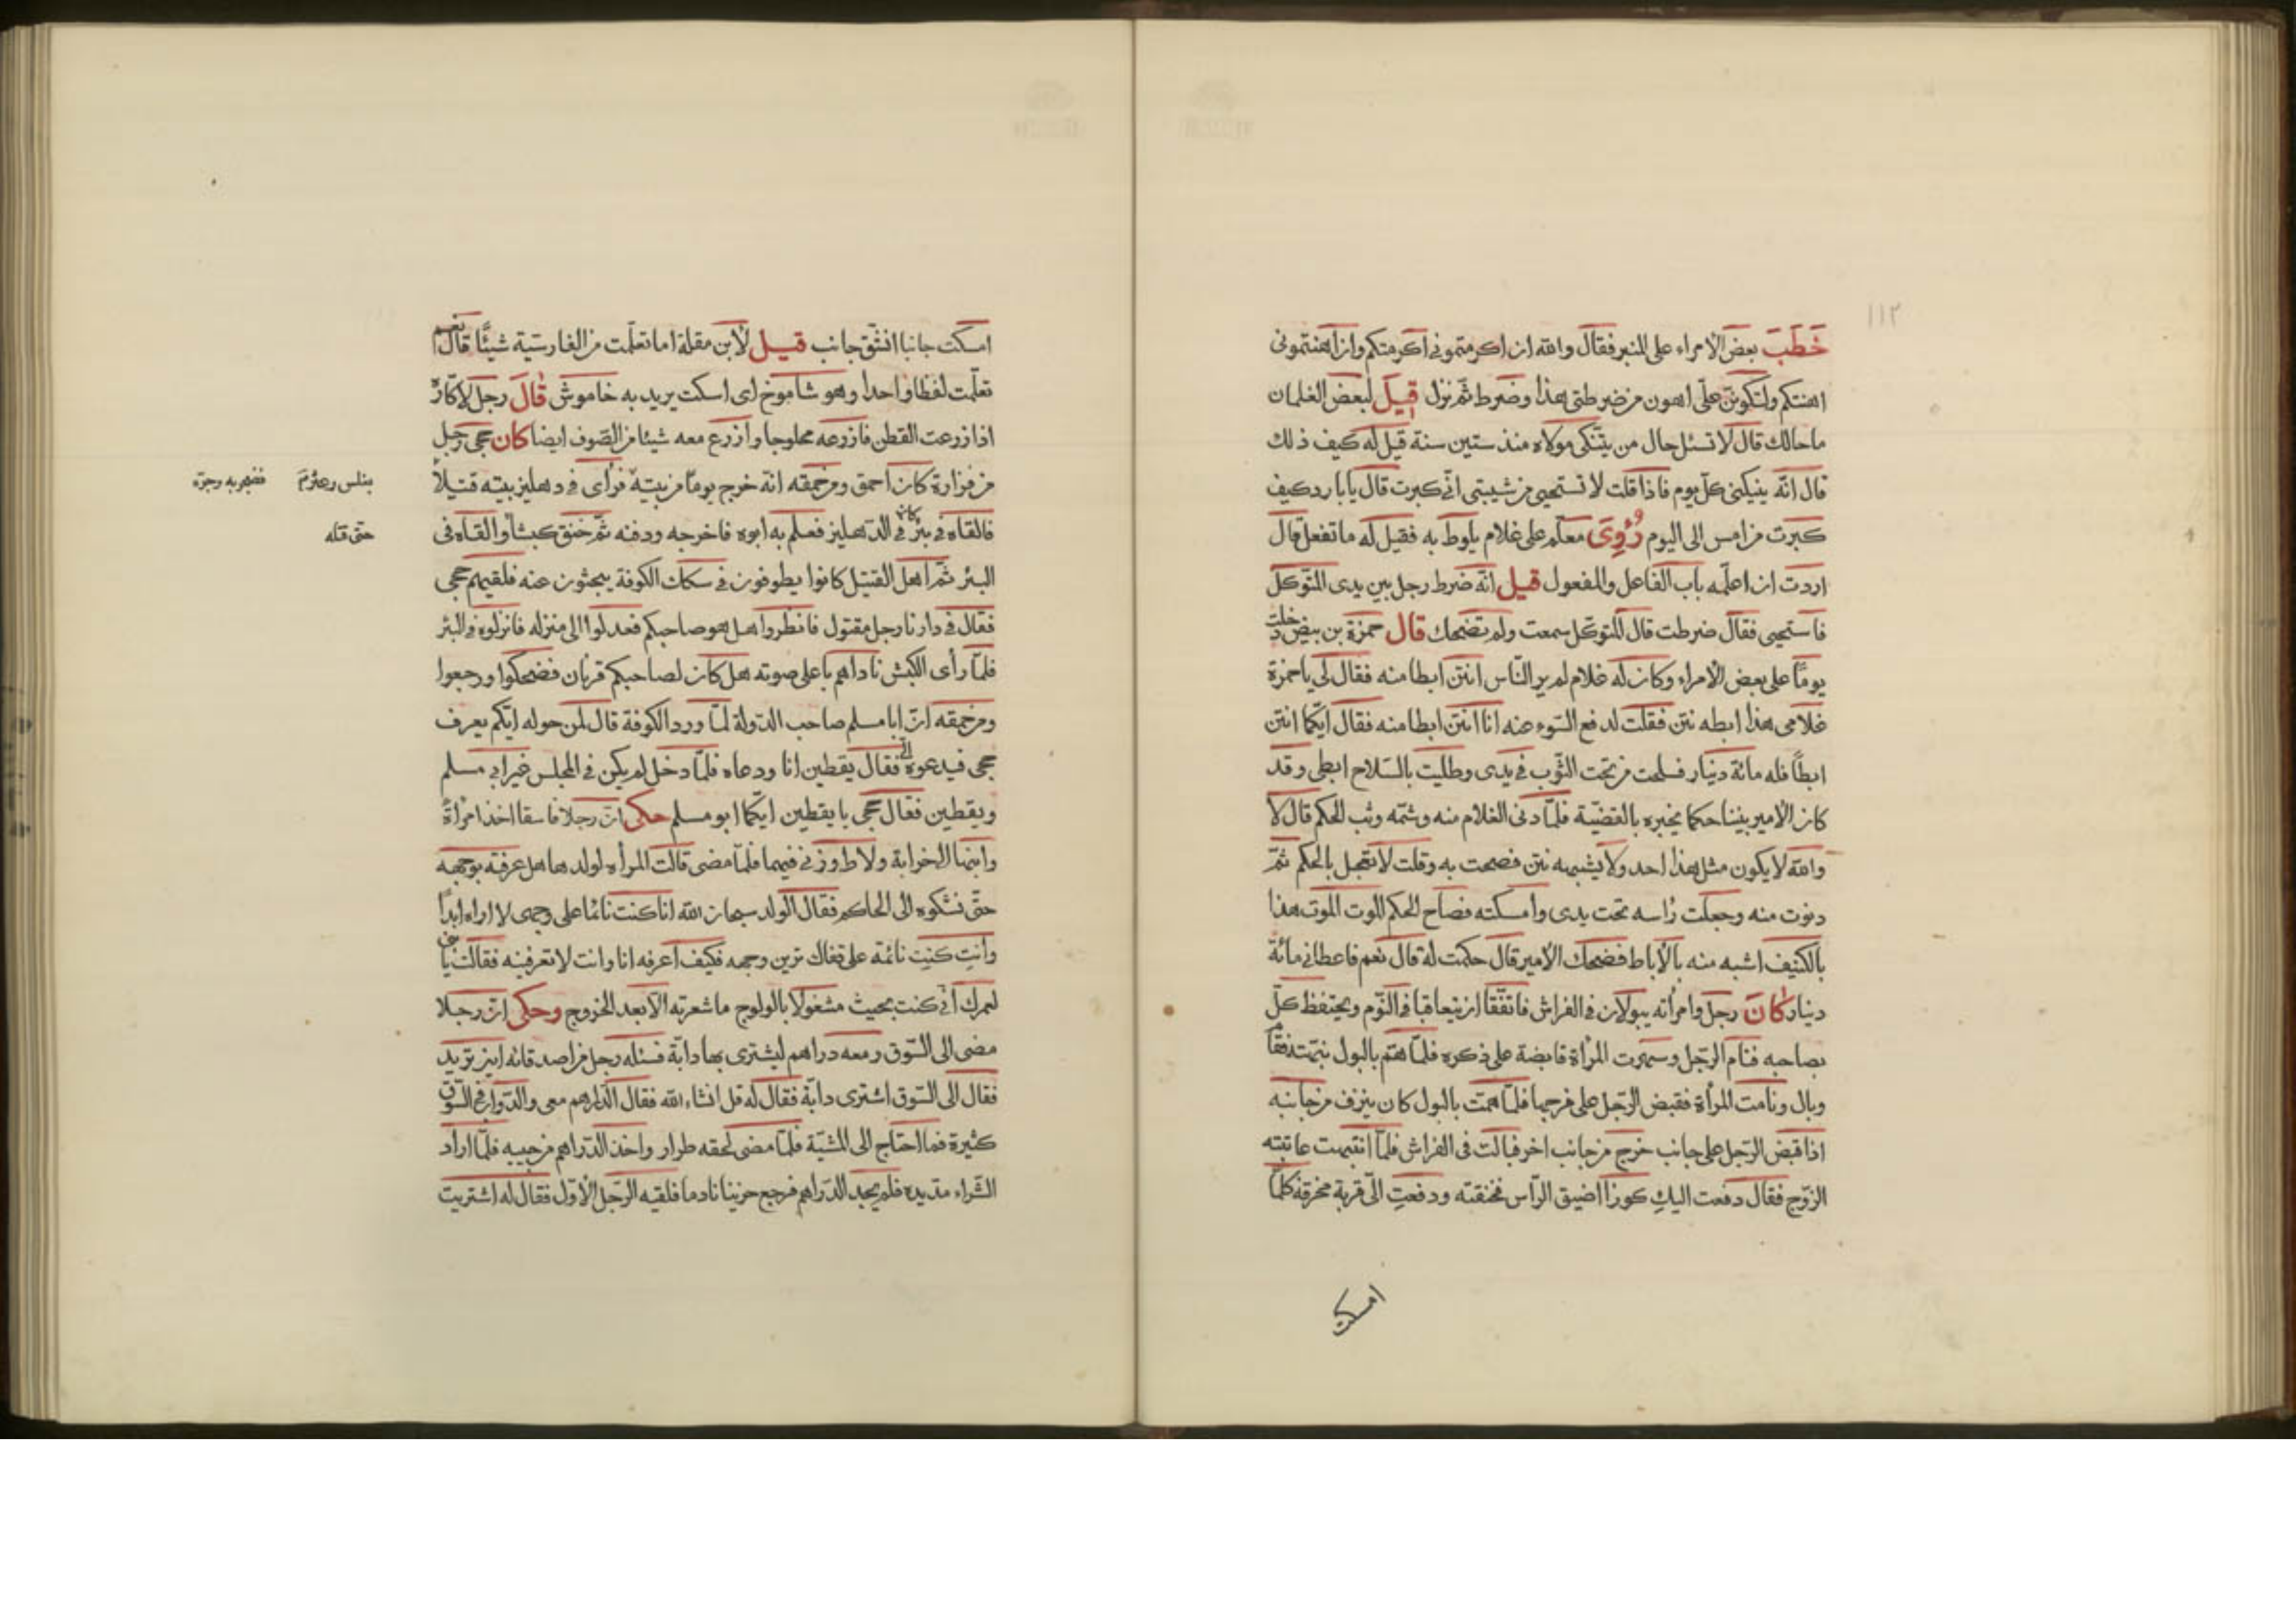 ١١٢
خَطَبَ بعض الامراء على المنبر فقال والله ان اكرمتمونى اكرمتكم وان اهنتمونى
اهنتكم ولتكوننّ علىّ اهون من ضرطتى هذا وضرط ثمّ نزل قيل لبعض الغلمان
ما حالك قال لا تسئل حال من يتنكى مولاه منذ ستين سنة قيل له كيف ذلك
قال انّه ينيكنى كلّ يوم فاذا قلت لا تستحيى من شيبتى انّى كبرت قال يا بارد كيف
كبرت من امس الى اليوم رُؤِىَ معلّم على غلام يلوط به فقيل له ما تفعل قال
اردت ان اعلّمه باب الفاعل والمفعول قيل انّه ضرط رجل بين يدى المتوكّل
فاستحيى فقال ضرطت قال المتوكّل سمعت ولم تضحك قال حمزة بن بيض دخلت
يومًا على بعض الأمراء وكان له غلام لم ير النّاس انتن ابطا منه فقال لى يا حمزة
غلامى هذا ابطه نتن فقلت لدفع السّوء عنه انا انتن ابطا منه فقال ايّكما انتن
ابطًا فله مائة دينار فسلحت من تحت الثّوب فى يدى وطليت بالسّلاح ابطى وقد
كان الأمير بيننا حكما يخبره بالقضيّة فلمّا دنى الغلام منه وشمّه وثب الحكم قال لا
والله لا يكون مثل هذا احد ولا يشبهه نتن فصحت به وقلت لا تعجل بالحكم ثمّ
دنوت منه وجعلت رأسه تحت يدى وامسكته فصاح الحكم الموت الموت هذا
بالكنيف اشبه منه بالأباط فضحك الأمير قال حكمت له قال نعم فاعطانى مائة
دينار كَانَ رجل وامرأته يبولان فى الفراش فاتّفقا ان يتعاقبا فى النّوم ويحتفظ كلّ
بصاحبه فنام الرّجل وسهرت المرأة قابضة على ذكره فلمّا همّ بالبول نبّهته فقا
وبال ونامت المرأة فقبض الرّجل على فرجها فلمّا همّت بالبول كان ينزف من جانبه
اذا قبض الرّجل على جانب خرج من جانب اخر فبالت فى الفراش فلمّا انتبهت عاتبته
الزّوج فقال دفعت اليكِ كوزًا اضيق الرّأس فخنقته ودفعتِ الىّ قربة مخرقة كلّما
امسكت
امسكت جانبا انشقّ جانب قيل لأبن مقلة اما تعلّمت من الفارسيّة شيئًا قال نعم
تعلّمت لفظا واحدا وهو شاموخ اى اسكت يريد به خاموش قَالَ رجل لاكّاره
اذا زرعت القطن فازرعه محلوجا وازرع معه شيئا من الصّوف ايضا كان جحى رجل
من فزارة كان احمق ومن حمقه انّه خرج يومًا من بيته فرأى فى دهليز بيته قتيلًا
فالقاه فى بئر كان فى الدّهليز فعلم به ابوه فاخرجه ودفنه ثمّ خنق كبشًا والقاه فى
البئر ثمّ اهل القتيل كانوا يطوفون فى سكك الكوفة يبحثون عنه فلقيهم جحى
فقال فى دارنا رجل مقتول فانظروا هل هو صاحبكم فعدلوا الى منزله فانزلوه فى البئر
فلمّا رأى الكبش ناداهم باعلى صوته هل كان لصاحبكم قرنان فضحكوا ورجعوا
ومن حمقه انّ ابا مسلم صاحب الدّولة لمّا ورد الكوفة قال لمن حوله ايّكم يعرف
جحى فيدعوه الىّ فقال يقطين انا ودعاه فلمّا دخل لم يكن فى المجلس غير ابى مسلم
ويقطين فقال جحى يا يقطين ايّكما ابو مسلم حكى انّ رجلا فاسقا اخذ امرأةً
وابنها الى خرابة ولاط وزنى فيهما فلمّا مضى قالت المرأه لولدها هل عرفته بوجهه
حتّى نشكوه الى الحاكم فقال الولد سبحان الله انا كنت نائما على وجهى لا اراه ابدًا
وانتِ كنتِ نائمة على قفاك ترين وجهه فكيف اعرفه انا وانت لا تعرفينه فقالت يا بنى
لعمرك انّى كنت بحيث مشغولا بالولوج ما شعرت به الّا بعد الخروج وحكى انّ رجلا
مضى الى السّوق ومعه دراهم ليشترى بها دابّة فسئله رجل من اصدقائه اين تريد
فقال الى السّوق اشترى دابّة فقال له قل انشاء الله فقال الدّراهم معى والدّوابّ فى السّوق
كثيرة فما احتاج الى المشيّة فلمّا مضى لحقه طرار واخذ الدّراهم من جيبه فلمّا اراد
الشّراء مدّ يده فلم يجد الدّراهم فرجع حزينا نادما فلقيه الرّجل الأوّل فقال له اشتريت
حتى قتله